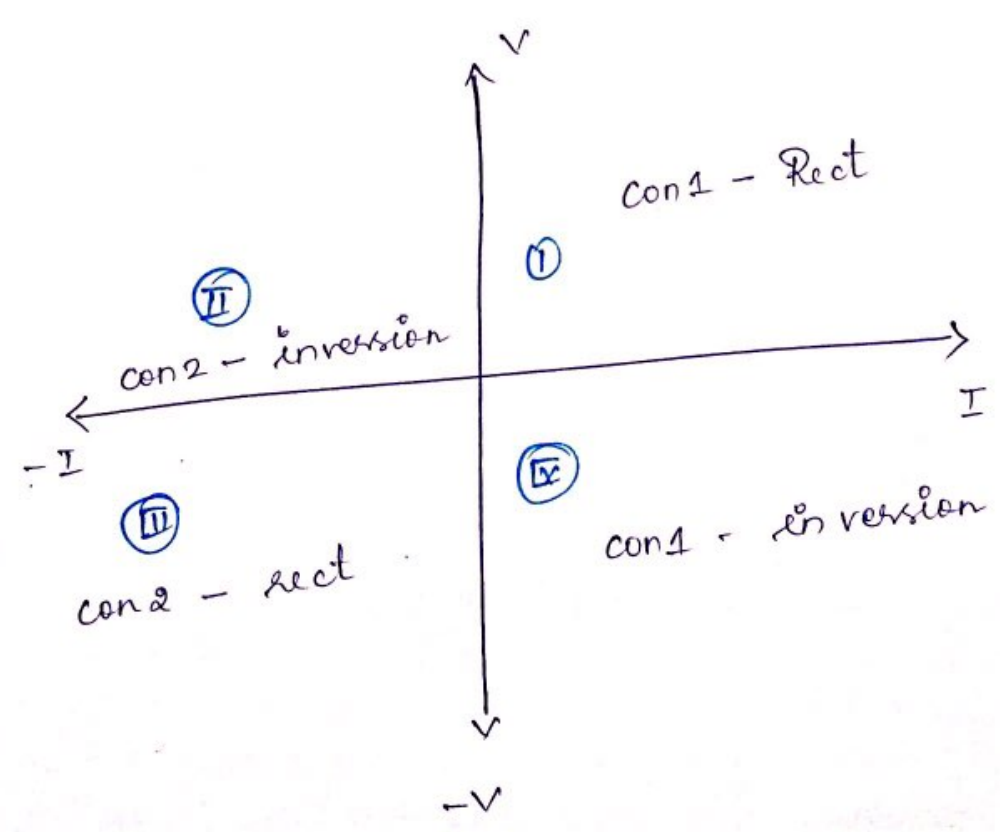 V
con1 - Rect
I
II
con2 - inversion
I
-I
IV
III
con1 - inversion
con2 - rect
-V